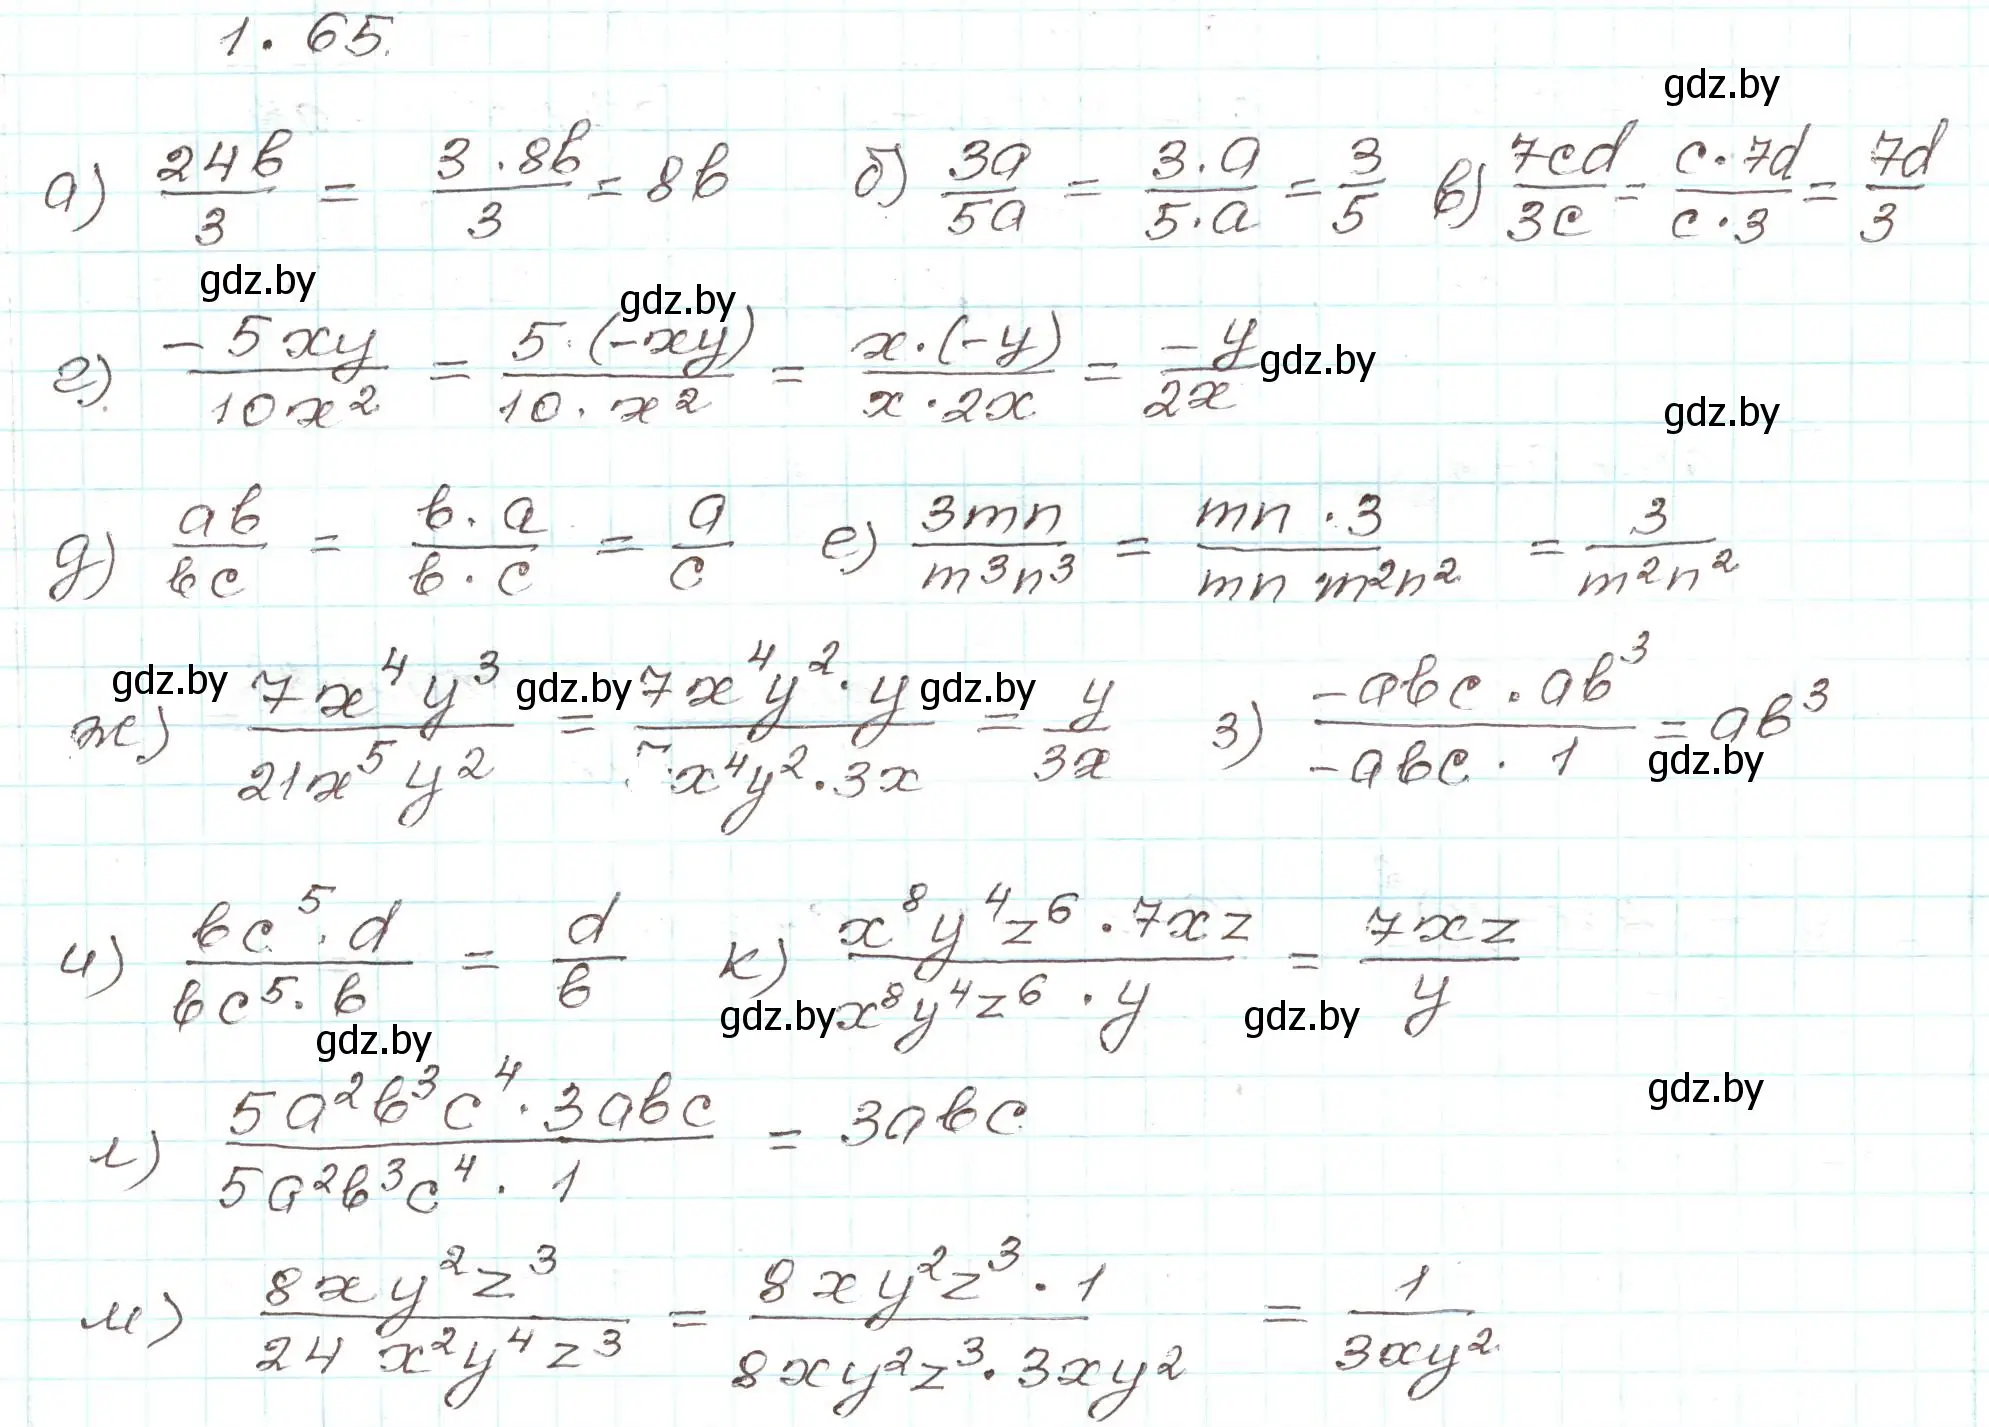 1. 65.
gdz.by
а) 24b/3 = 3·8b/3 = 8b б) 3a/5a = 3·a/5·a = 3/5 в) 7cd/3c = c·7d/c·3 = 7d/3
gdz.by gdz.by
г) -5xy/10x² = 5·(-xy)/10·x² = x·(-y)/x·2x = -y/2x gdz.by
gdz.by
д) ab/bc = b·a/b·c = a/c е) 3mn/m³n³ = mn·3/mn·m²n² = 3/m²n²
gdz.by gdz.by gdz.by
ж) 7x⁴y³/21x⁵y² = 7x⁴y²·y/7x⁴y²·3x = y/3x з) -abc·ab³/-abc·1 = ab³
gdz.by
и) bc⁵·d/bc⁵·b = d/b к) x⁸y⁴z⁶·7xz/x⁸y⁴z⁶·y = 7xz/y
gdz.by gdz.by
gdz.by
gdz.by
л) 5a²b³c⁴·3abc/5a²b³c⁴·1 = 3abc
м) 8xy²z³/24x²y⁴z³ = 8xy²z³·1/8xy²z³·3xy² = 1/3xy²